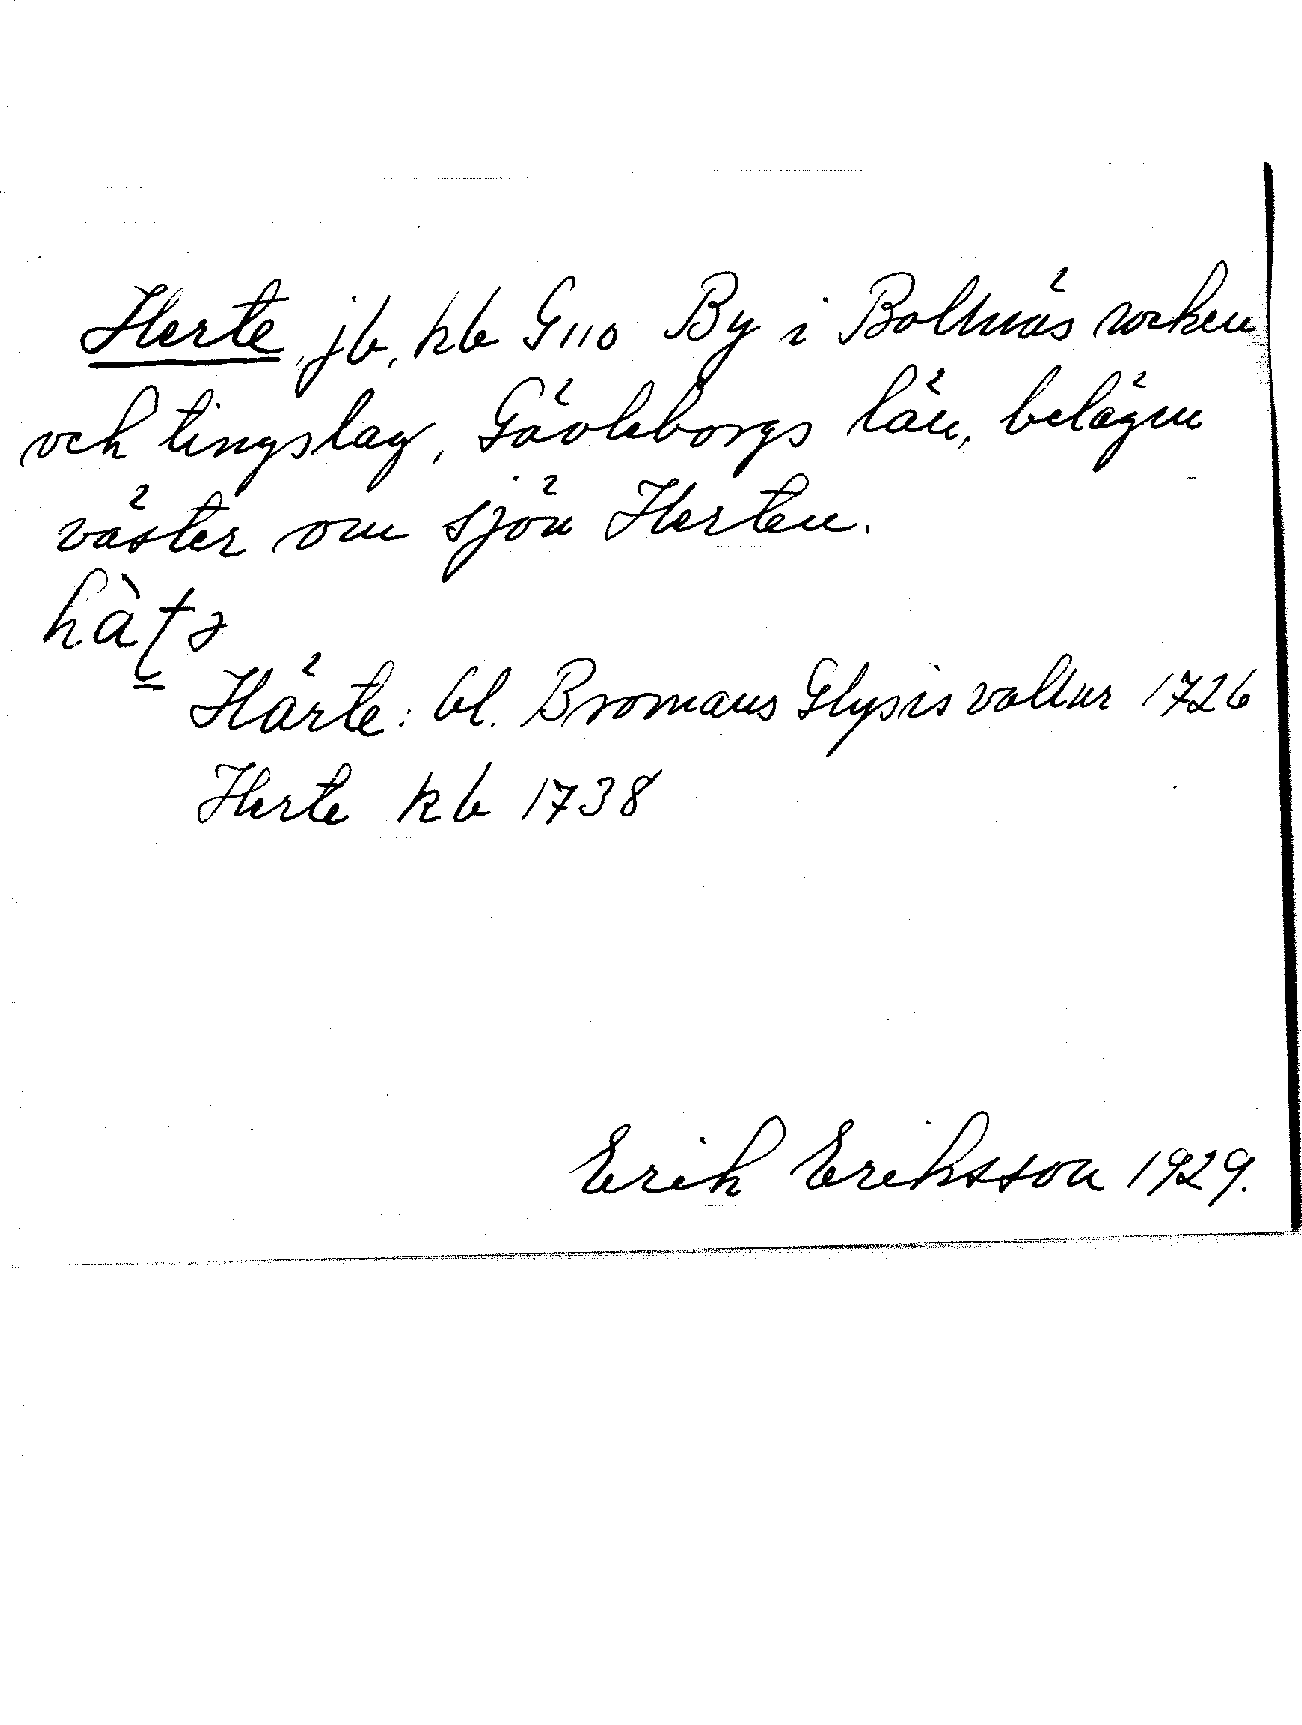 Herte, jb, kb G110 By i Bollnäs socken
och tingslag, Gävleborgs län, belägen
väster om sjön Herten.
hàtə
Härte: bl. Bromans Glysisvallur 1726
Herte kb 1738
Erik Eriksson 1929.